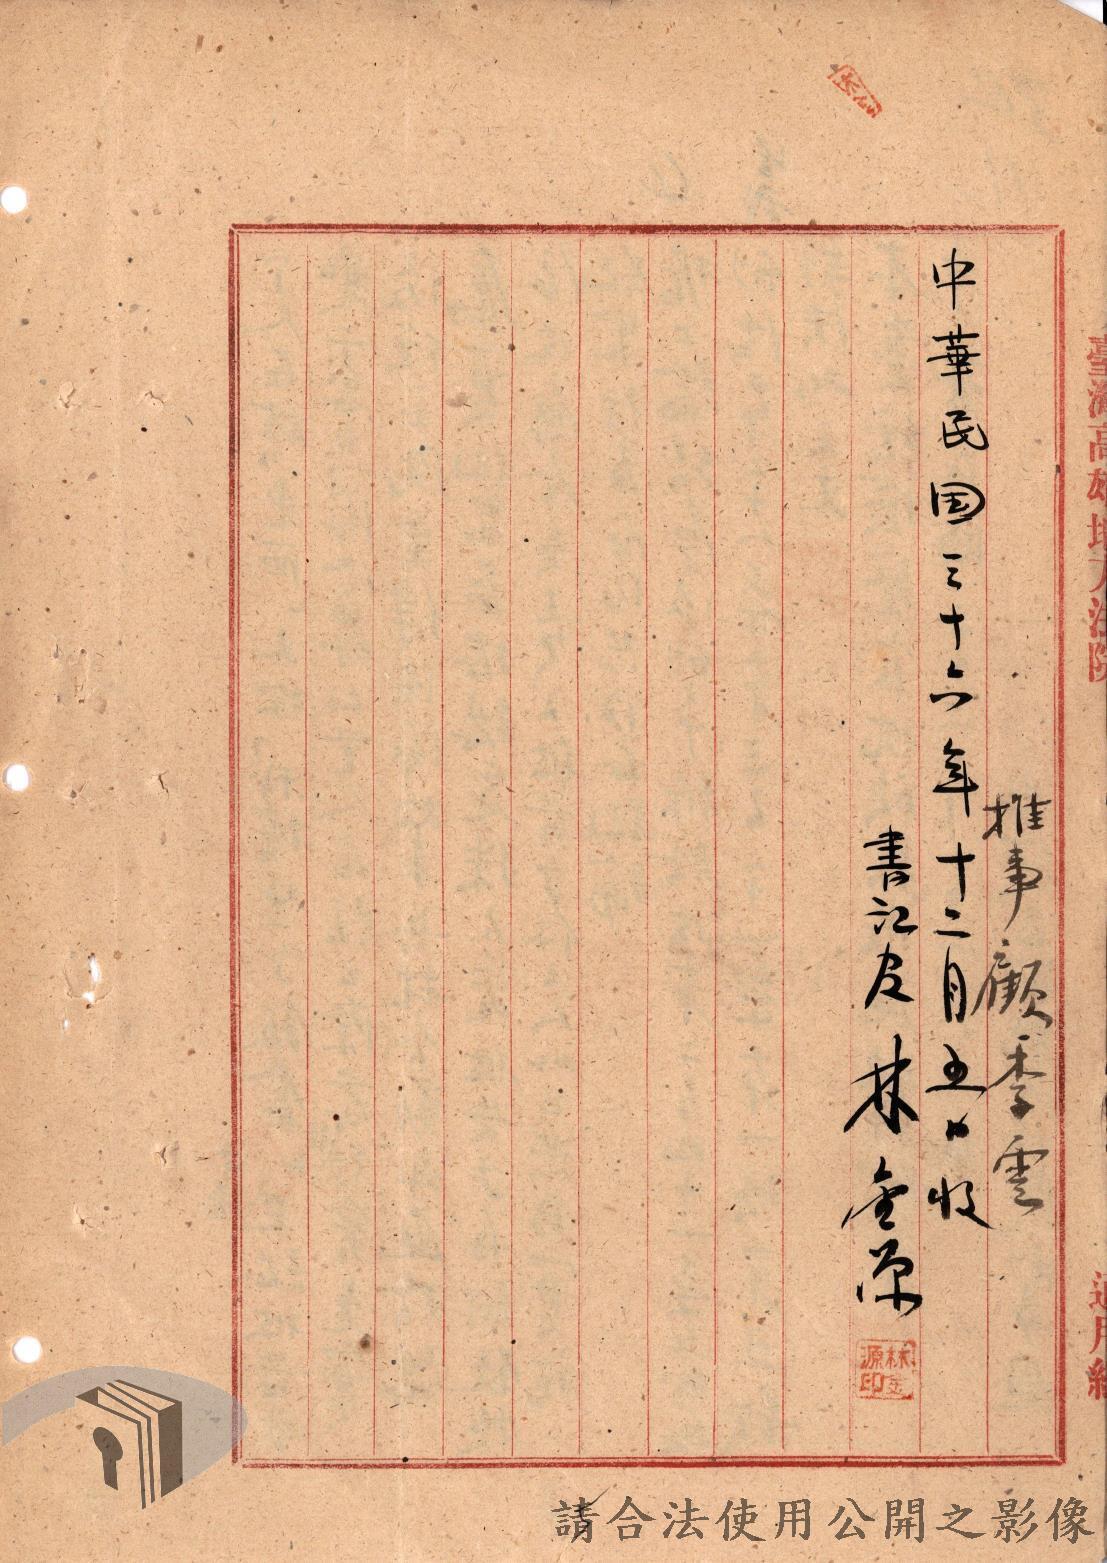 臺灣高雄地方法院
通用紙
推事顧季雲
中華民国三十六年十二月五日收
書记官林金源
林金源印
請合法使用公開之影像